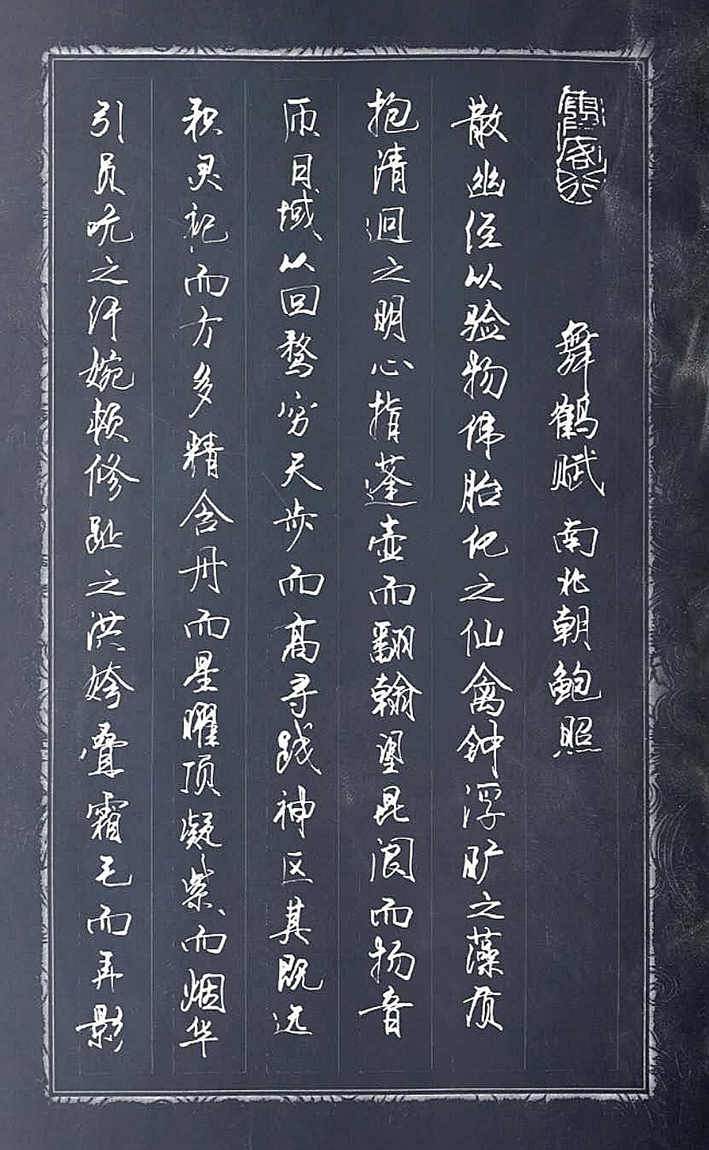 舞鹤赋 南北朝 鲍照
散幽经以验物伟胎化之仙禽钟浮旷之藻质
抱清迥之明心指蓬壶而翻翰望昆阆而扬音
匝日域以回骛穷天步而高寻践神区其既远
积灵祀而方多精含丹而星曜顶凝紫而烟华
引员吭之纤婉顿修趾之洪姱叠霜毛而弄影